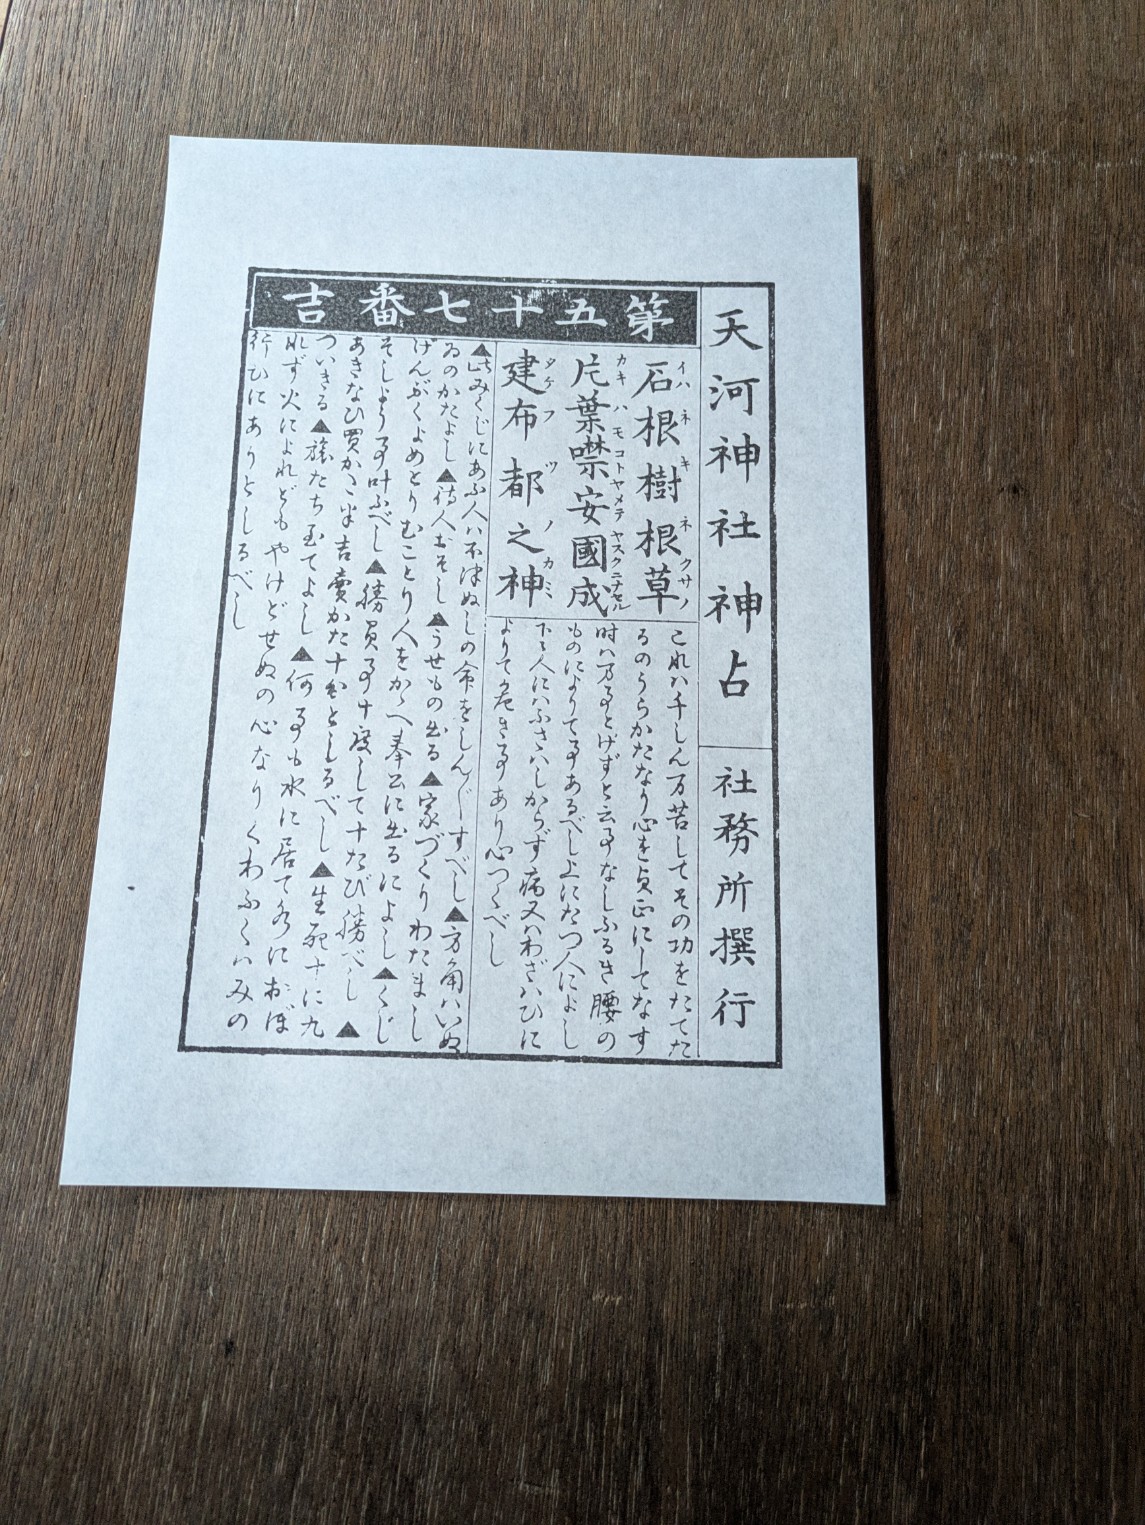 天河神社神占
社務所撰行
第五十七番吉
石根樹根草
イハネキネクサノ
片葉噤安國成
カキハモコトヤメテヤスクニナセル
建布都之神
タケフツノカミ
これハ千しん万苦してその功をたてた
るのうらかたなり心を貞正にしてなす
時ハ万事とげずと云事なしふるき腰の
ものによりて事あるべし上にたつ人によし
下々人にハふさハしからず病又ハわざハひに
よりて危き事あり心つくべし
▲此みくじにあふ人ハ不津ぬしの命をしんじすべし▲方角ハいぬ
ゐのかたよし▲待人おそし▲うせもの出る▲家づくりわたまし
げんぶくよめとりむことり人をかゝへ奉公に出るによし▲くじ
そしよう事叶ふべし▲勝負事十度して十たび勝べし▲
あきなひ買かた半吉賣かた十分としるべし▲生死十に九
ついきる▲旅たち至てよし▲何事も水に居て水におぼ
れず火によれどもやけどせぬの心なりくわふくハみの
行ひにありとしるべし